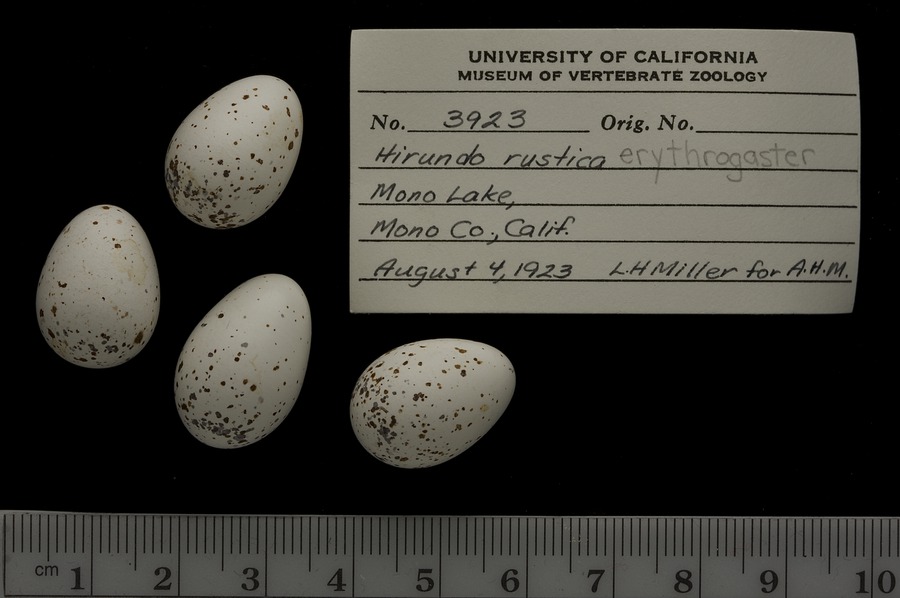 UNIVERSITY OF CALIFORNIA
MUSEUM OF VERTEBRATE ZOOLOGY
No. 3923 Orig. No.
Hirundo rustica erythrogaster
Mono Lake,
Mono Co., Calif.
August 4, 1923 L.H Miller for A.H.M.
cm 1 2 3 4 5 6 7 8 9 10